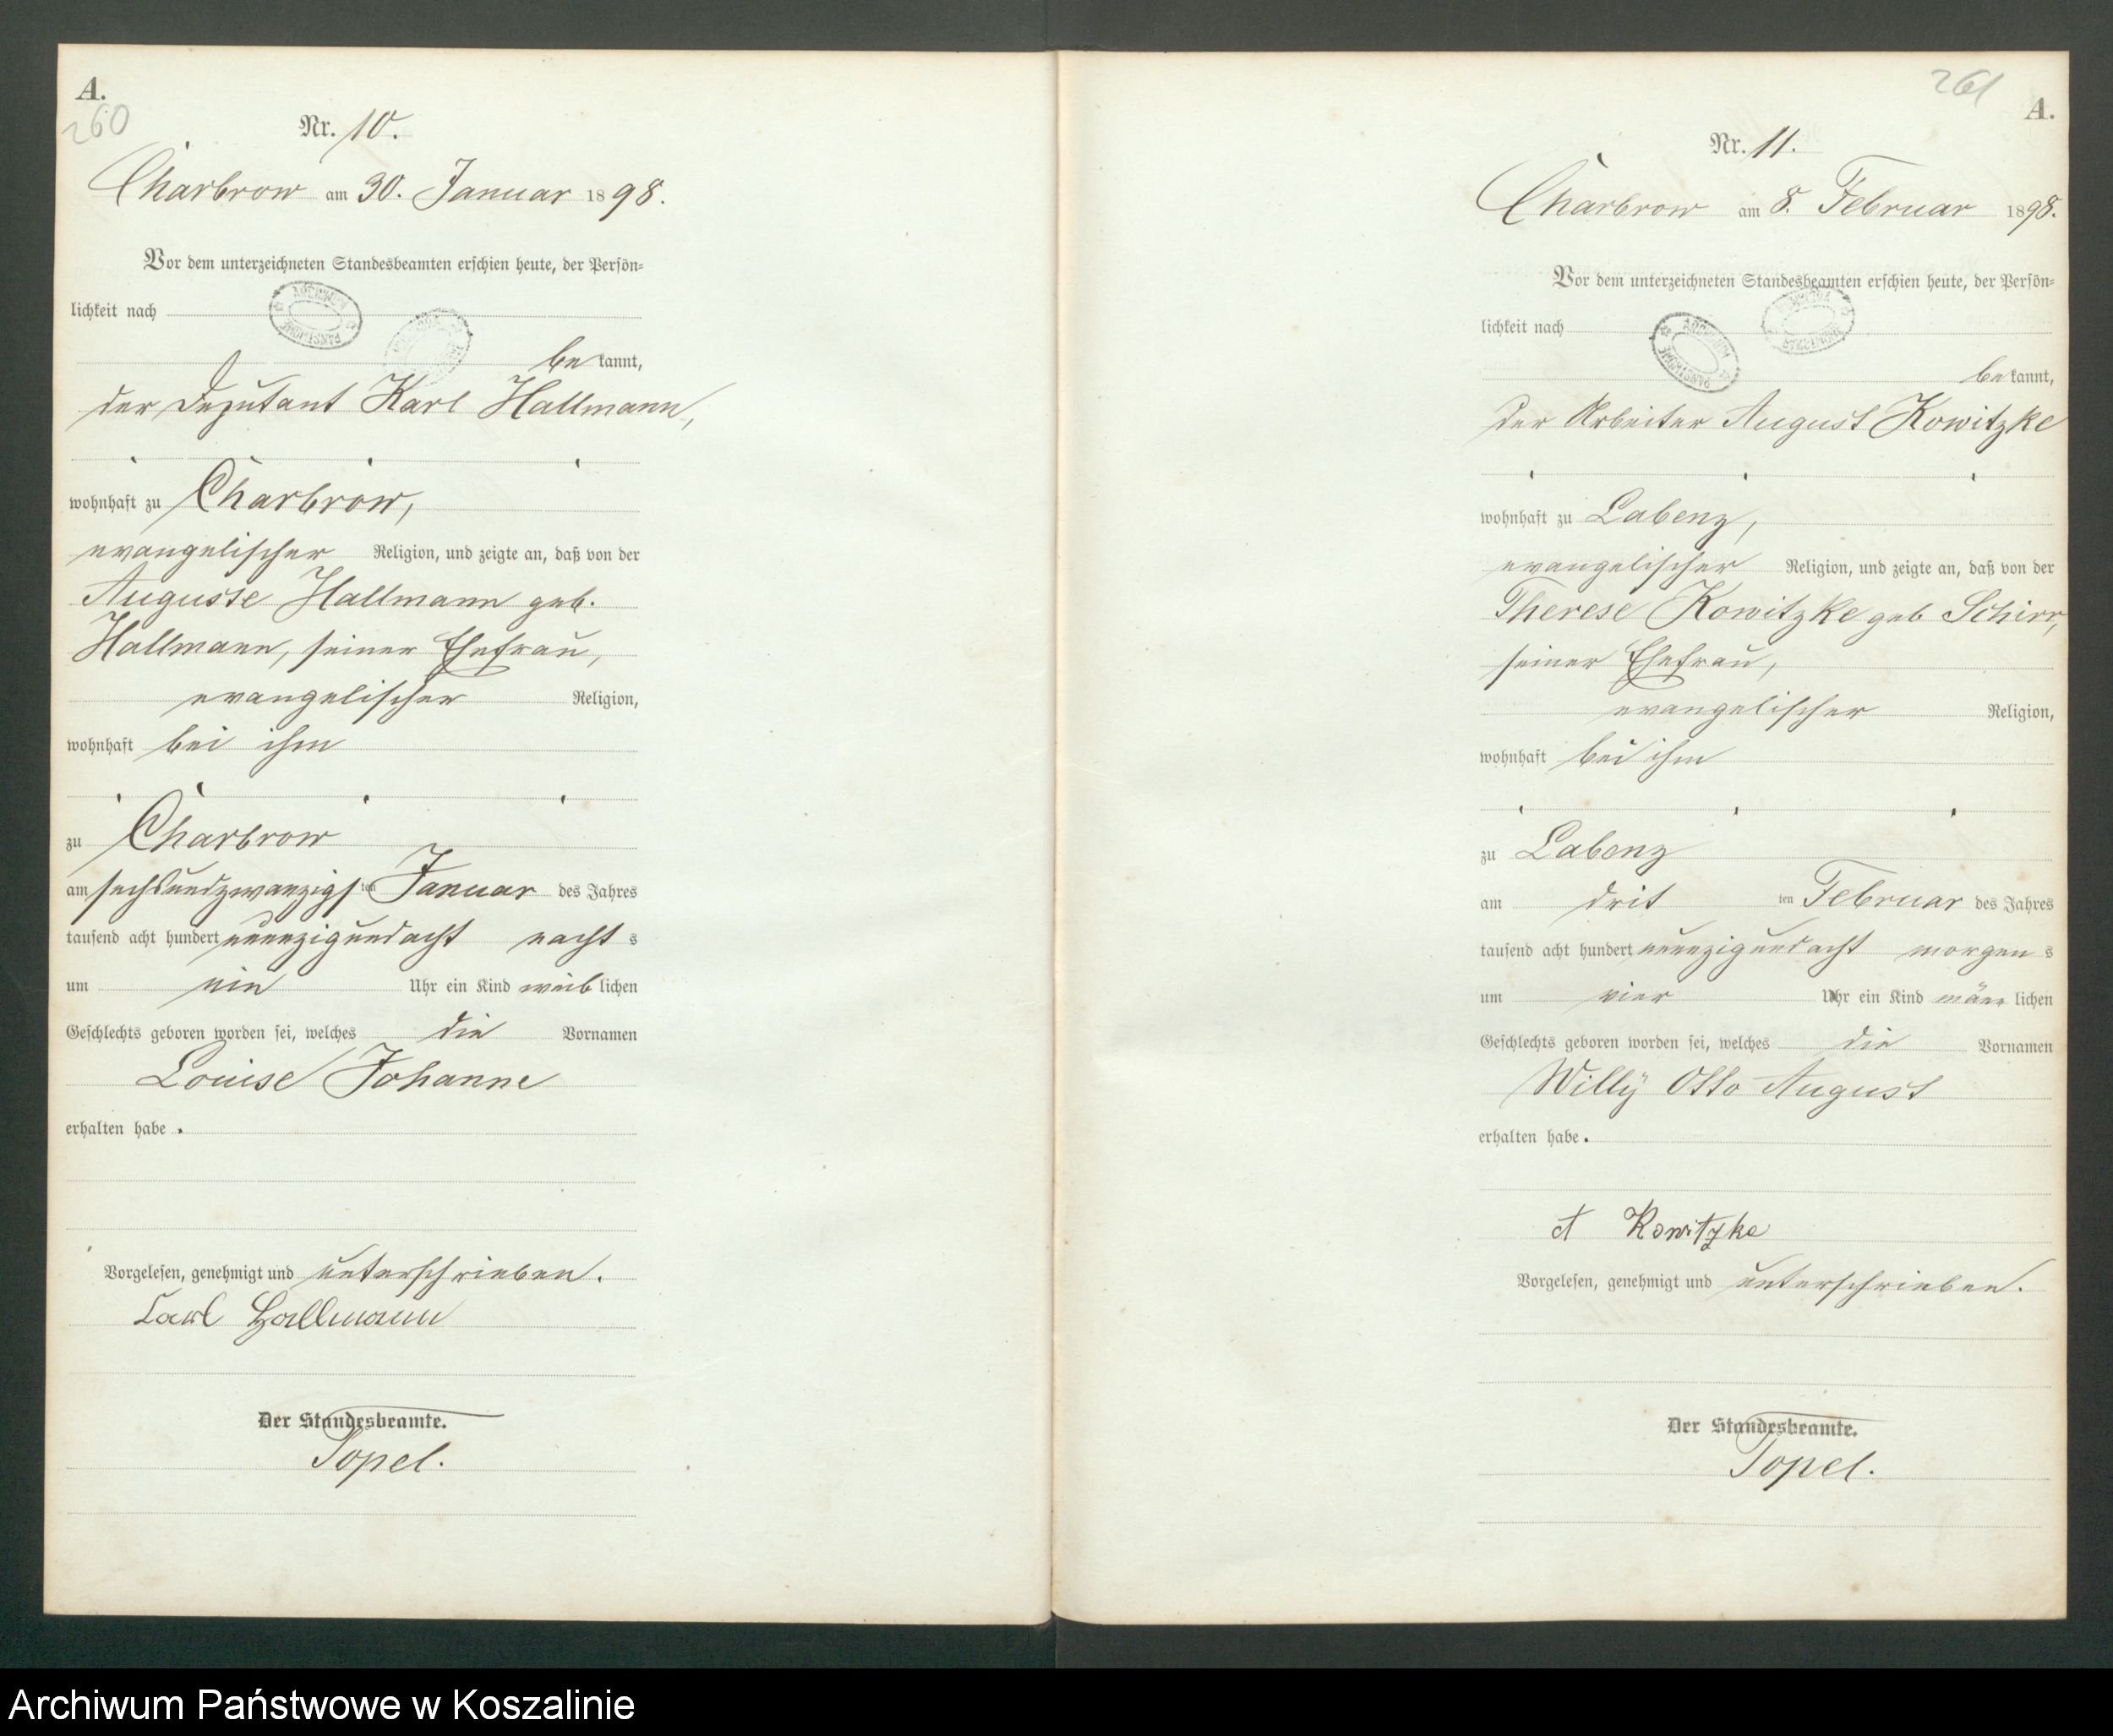 A.
260
Nr. 10.
Charbrow am 30. Januar 1898.
Vor dem unterzeichneten Standesbeamten erschien heute, der Persön-
lichkeit nach
be kannt,
der Deputant Karl Hallmann,
wohnhaft zu Charbrow,
evangelischer Religion, und zeigte an, daß von der
Auguste Hallmann geb.
Hallmann, seiner Ehefrau,
evangelischer Religion,
wohnhaft bei ihm
zu Charbrow
am sechsundzwanzigs ten Januar des Jahres
tausend acht hundert neunzigundacht nacht s
um ein Uhr ein Kind weib lichen
Geschlechts geboren worden sei, welches die Vornamen
Louise Johanne
erhalten habe.
Vorgelesen, genehmigt und unterschrieben.
Carl Hallmann
Der Standesbeamte.
Topel.
261
A.
Nr. 11.
Charbrow am 8. Februar 1898.
Vor dem unterzeichneten Standesbeamten erschien heute, der Persön-
lichkeit nach
be kannt,
der Arbeiter August Kowitzke
wohnhaft zu Labenz,
evangelischer Religion, und zeigte an, daß von der
Therese Kowitzke geb Schirr,
seiner Ehefrau,
evangelischer Religion,
wohnhaft bei ihm
zu Labenz
am drit ten Februar des Jahres
tausend acht hundert neunzigundacht morgen s
um vier Uhr ein Kind männ lichen
Geschlechts geboren worden sei, welches die Vornamen
Willy Otto August
erhalten habe.
A Kowitzke
Vorgelesen, genehmigt und unterschrieben.
Der Standesbeamte.
Topel.
Archiwum Państwowe w Koszalinie